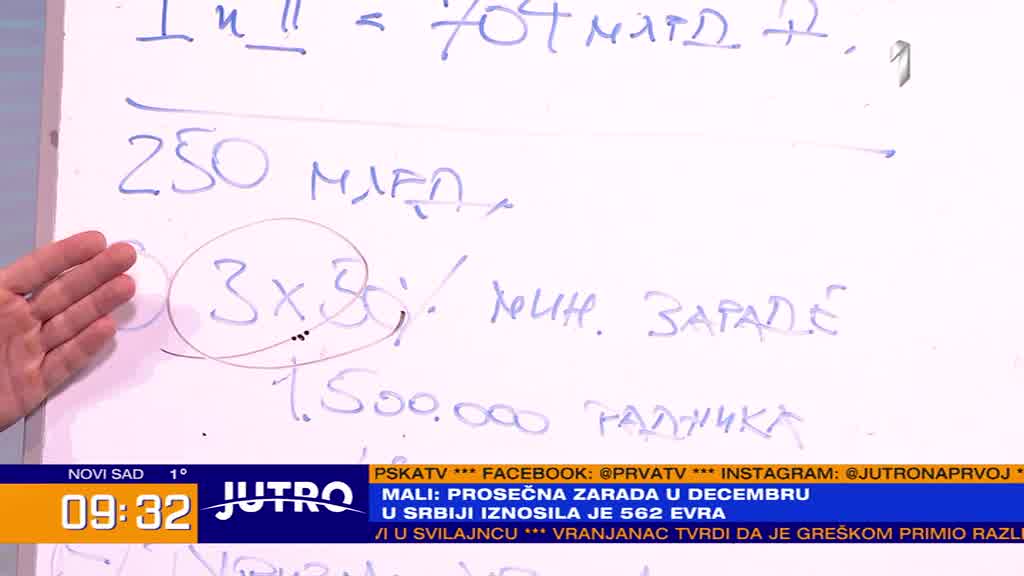 I и II = 704 МЛРД Д.
1
250 МЛРД.
3 x 30% МИН. ЗАРАДЕ
1.500.000 РАДНИКА
NOVI SAD 1°
09:32
JUTRO
PSKATV *** FACEBOOK: @PRVATV *** INSTAGRAM: @JUTRONAPRVOJ *
MALI: PROSEČNA ZARADA U DECEMBRU
U SRBIJI IZNOSILA JE 562 EVRA
VI U SVILAJNCU *** VRANJANAC TVRDI DA JE GREŠKOM PRIMIO RAZLI